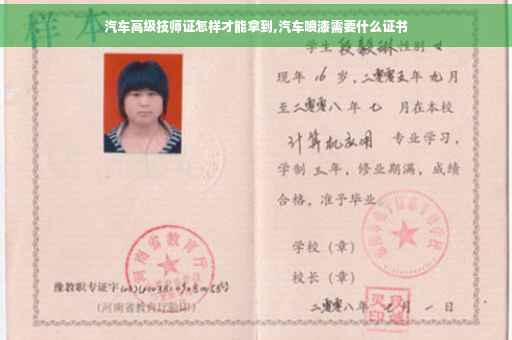 汽车高级技师证怎样才能拿到,汽车喷漆需要什么证书
样本
学生段毅琳性别女
现年16岁,二零零五年九月
至二零零八年七月在本校
计算机应用 专业学习,
学制三年,修业期满,成绩
合格,准予毕业
学校(章)
校长(章)
河南省教育厅
豫教职专证字
(河南省教育厅验印)
二零零八年 月一日